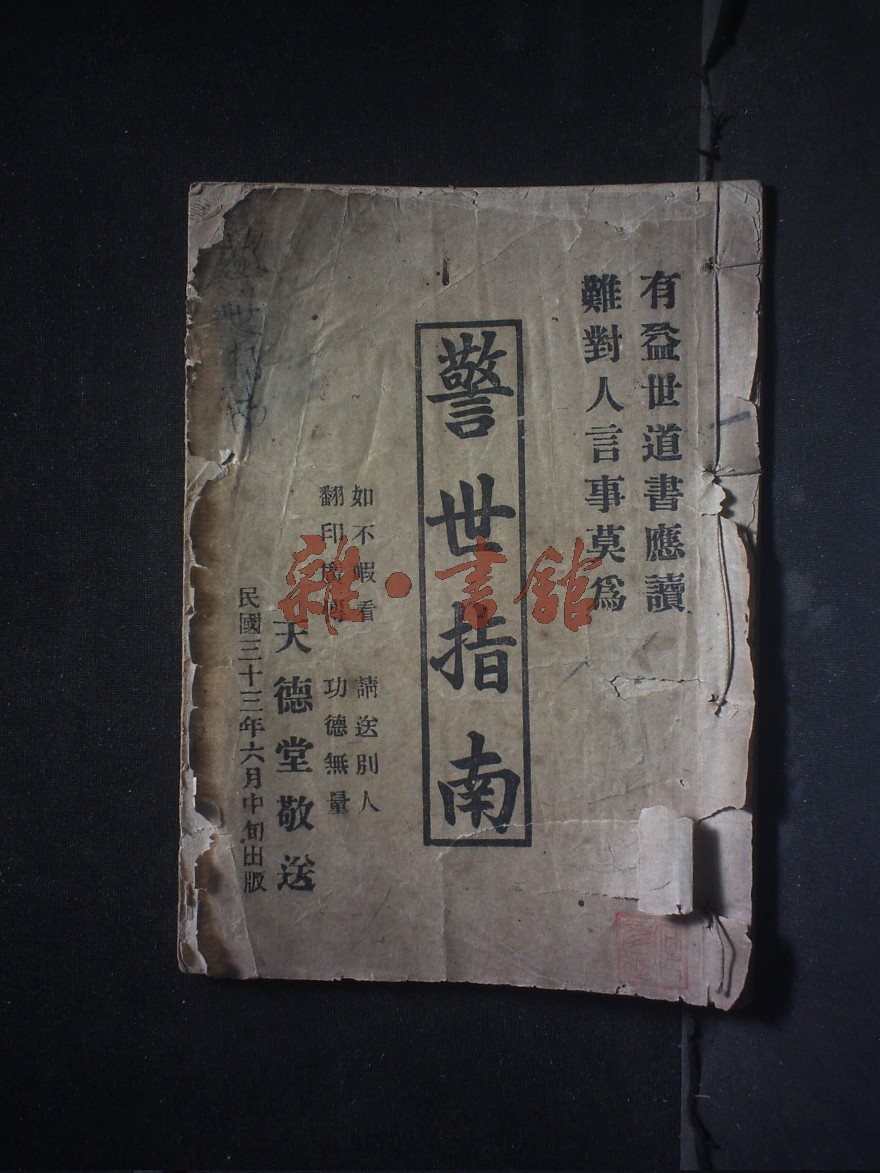 有益世道書應讀
難對人言事莫為
警世指南
如不暇看 請送別人
翻印廣傳 功德無量
天德堂敬送
民國三十三年六月中旬出版
雜·書館